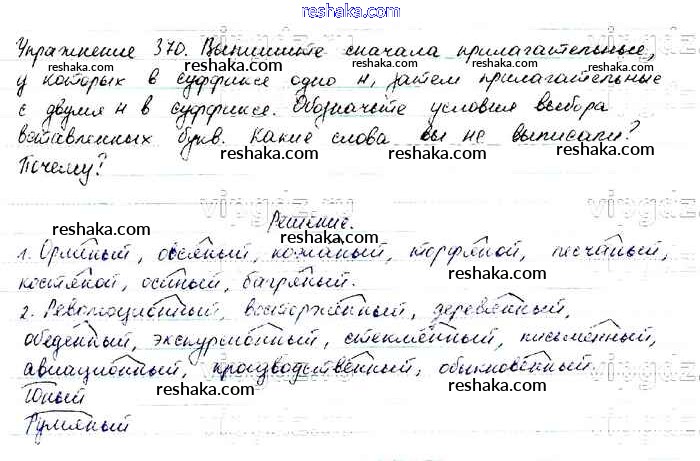 reshaka.com
Упражнение 370. Выпишите сначала прилагательные,
у которых в суффиксе одно н, затем прилагательные
с двумя н в суффиксе. Обозначьте условия выбора
reshaka.com reshaka.com
вставленных букв. Какие слова вы не выписали?
reshaka.com reshaka.com
Почему?
Решение.
reshaka.com reshaka.com
1. Орлиный, овсяный, кожаный, торфяной, песчаный,
костяной, осиный, багряный.
reshaka.com reshaka.com
2. Революционный, восторженный, деревянный,
обеденный, экскурсионный, стеклянный, письменный,
reshaka.com reshaka.com
авиационный, производственный, обыкновенный.
reshaka.com reshaka.com
Юный
Румяный
reshaka.com